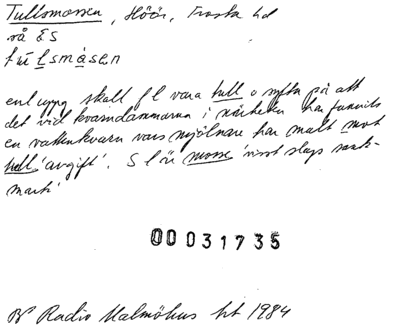 Tullsmossen, Höör, Frosta hd
så ÄS
túlsmåsen
enl uppg skall f l vara tull o syfta på att
det vid kvarndammarna i närheten har funnits
en vattenkvarn vars mjölnare har malt mot
tull 'avgift'. S l är mosse 'visst slags sank-
mark'
00031735
Radio Malmöhus ht 1984